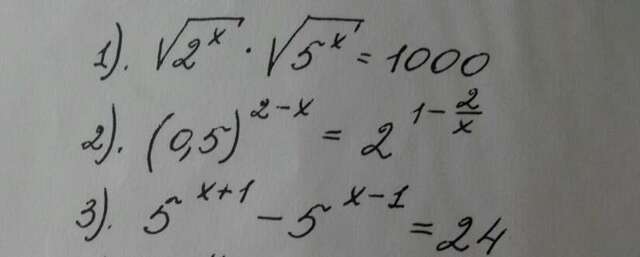 1). √2^x · √5^x = 1000
2). (0,5)^{2-x} = 2^{1-\frac{2}{x}}
3). 5^{x+1} - 5^{x-1} = 24